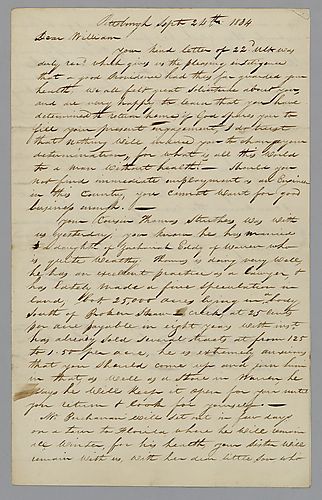 Pittsburgh Sept 24th 1834
Dear William
Your kind letter of 22d Ult was
duly recd which gives us the pleasing intelligence
that a good Providence had thus far guarded your
health. We all felt great Solicitude about you
and are very happy to learn that you have
determined to return home if God spares you to
fill your present engagement, I do trust
that Nothing will induce you to change your
determination, for what is all this World
to a man without health. Should you
not find immediate employment as an Engineer
in this Country, you cannot want for good
business enough.
Your Cousin Thomas Struthers was with
us yesterday, you know he has married
a daughter of Zachariah Eddy of Warren who
is quite Wealthy. Thomas is doing very well,
he has an excellent practice as a lawyer, &
has lately made a fine speculation in
land, Bot 25000 acres lying in body
South of Broken Straw Creek, at 25 cents
per acre payable in eight years with inst
has already sold several tracts at from 125
to 1.50 per acre, he is extremely anxious
that you should come up and join him
in that as well as a Store in Warren he
says he will keep it open for you until
you return & look for yourself
Mr Buchanan will set out in few days
on a tour to Florida where he will remain
all Winter for his health your Sister will
remain with us, with her dear little son who